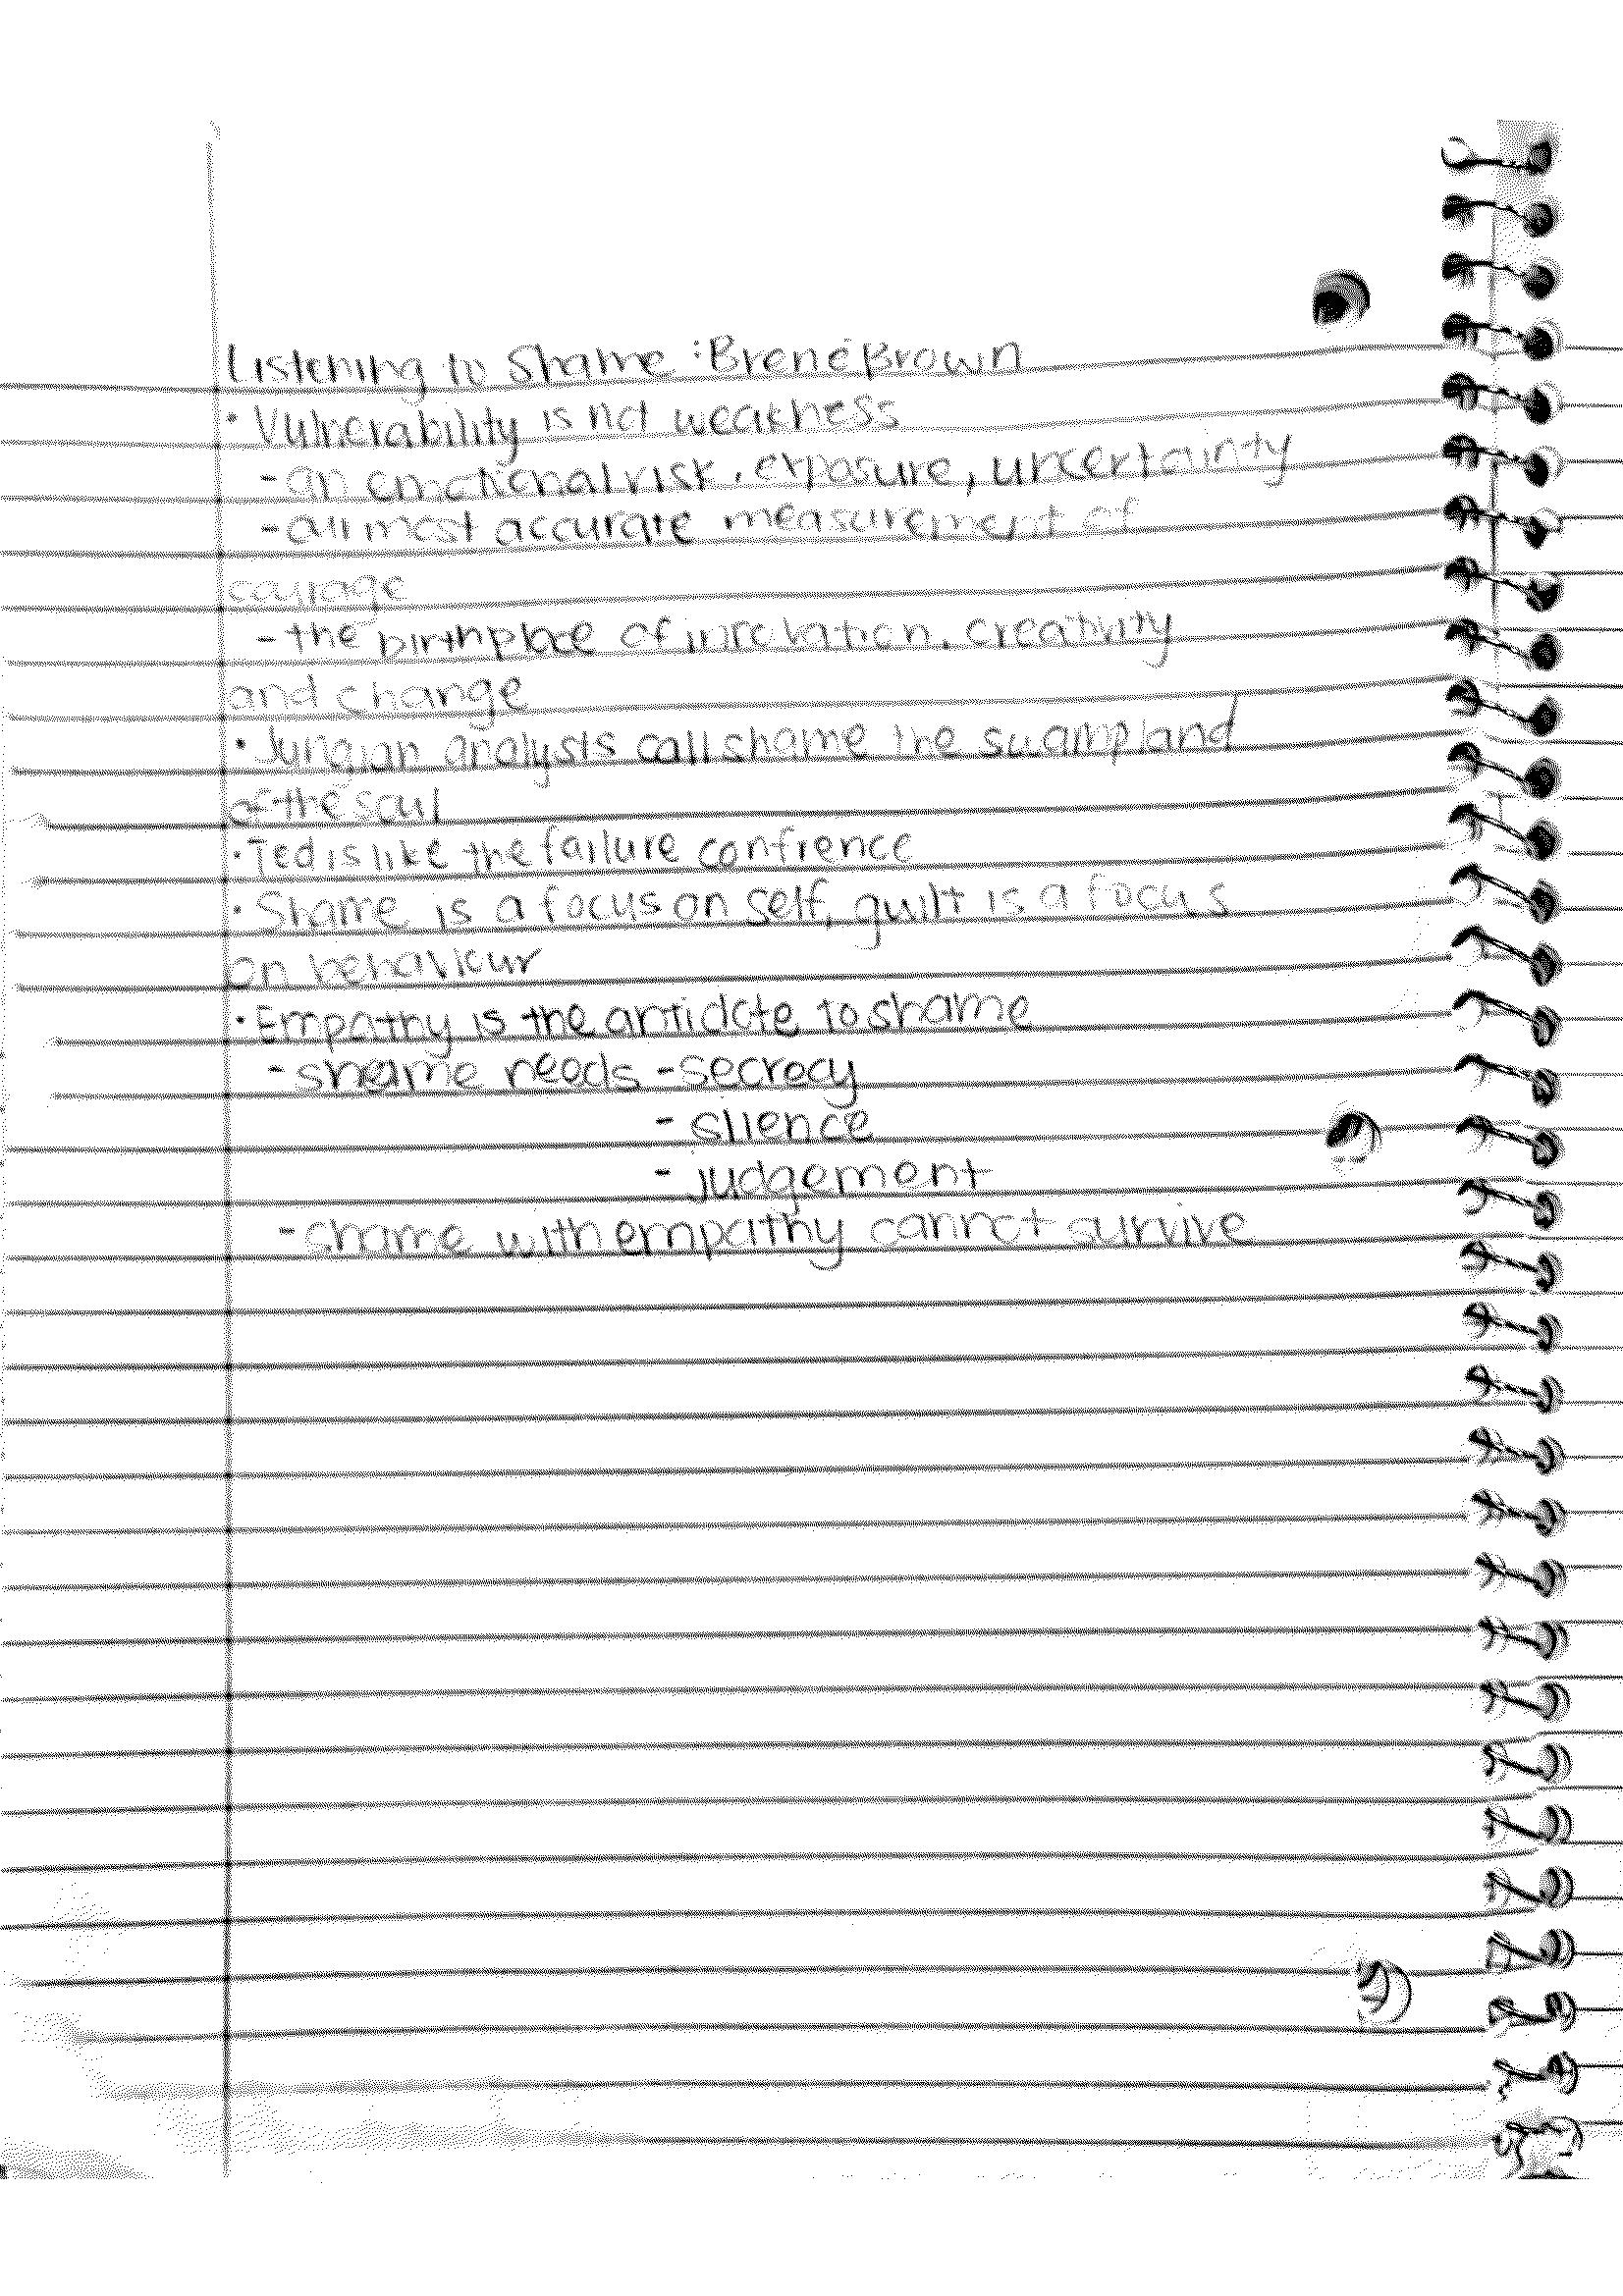 Listening to Shame : Brené Brown
• Vulnerability is not weakness
- an emotional risk, exposure, uncertainty
- our most accurate measurement of
courage
- the birthplace of innovation, creativity
and change
• Jungian analysts call shame the swampland
of the soul
• Ted is like the failure confrence
• Shame is a focus on self, guilt is a focus
on behaviour
• Empathy is the antidote to shame
- shame needs - secrecy
- slience
- judgement
- shame with empathy cannot survive